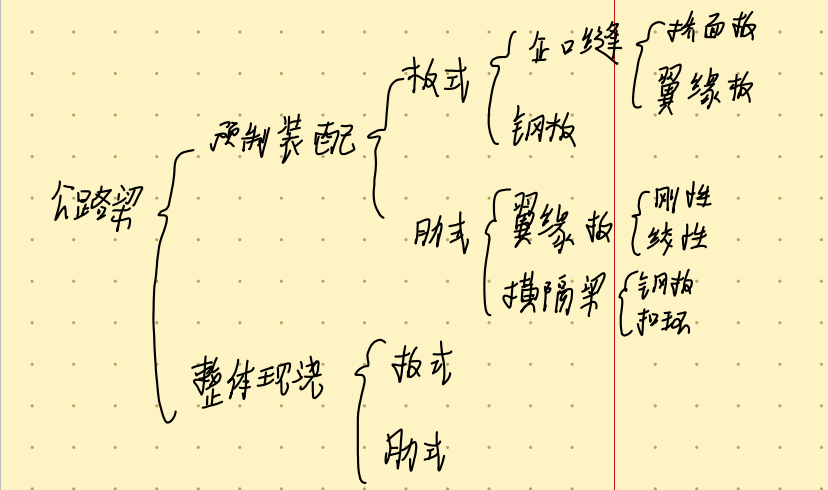 公路梁
预制装配
板式
企口缝
桥面板
翼缘板
钢板
肋式
翼缘板
刚性
线性
横隔梁
钢板
扣环
整体现浇
板式
肋式